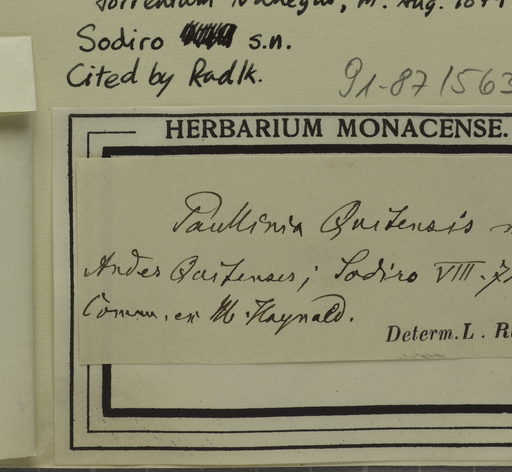 Sodiro s.n.
Cited by Radlk.
91-87/563
HERBARIUM MONACENSE.
Paullinia Quitensis
Andes Quitenses; Sodiro VIII.
Comm. ex M. Haynald.
Determ. L. R